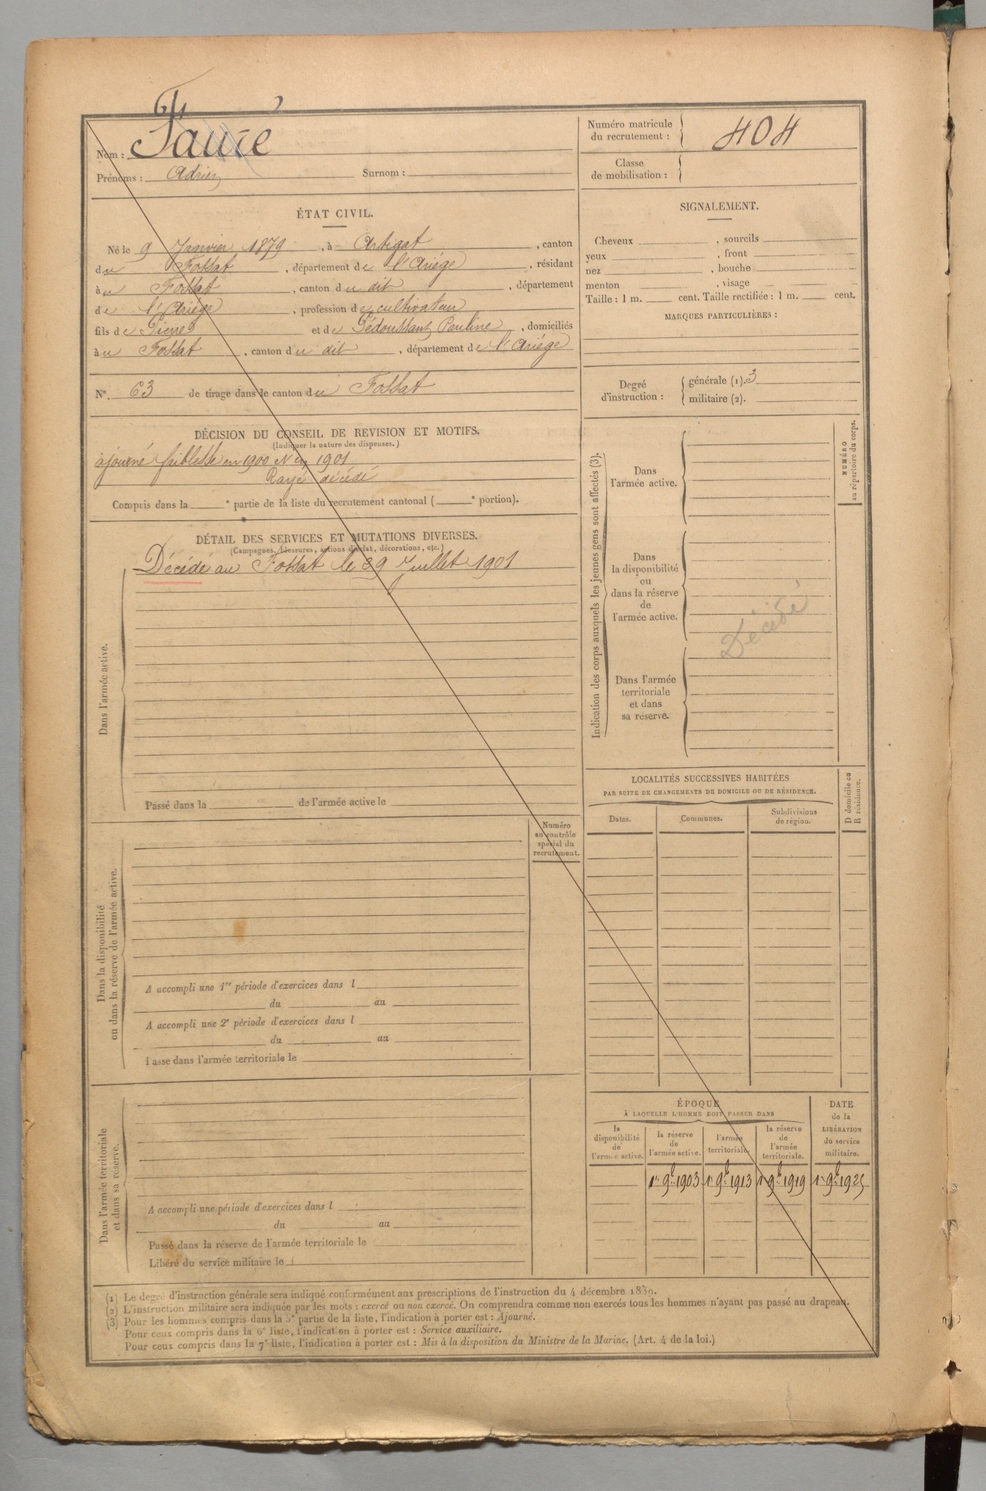 Nom : Faure
Prénoms : Adrien Surnom :
Numéro matricule
du recrutement : 404
Classe
de mobilisation :
ÉTAT CIVIL.
Né le 9 Janvier 1879, à Artigat, canton
du Fossat, département de l'Ariége, résidant
à u Fossat, canton du dit, département
de l'Ariége, profession de cultivateur
fils de Pierre et de Pauline, domiciliés
à u Fossat, canton du dit, département de l'Ariége
N°. 63 de tirage dans le canton du Fossat
DÉCISION DU CONSEIL DE REVISION ET MOTIFS.
(Indiquer la nature des dispenses.)
ajourné faiblesse en 1900 1901
Rayé décédé
Compris dans la e partie de la liste du recrutement cantonal ( e portion).
DÉTAIL DES SERVICES ET MUTATIONS DIVERSES.
(Campagnes, blessures, actions d'éclat, décorations, etc.)
Dans l'armée active.
Décédé au Fossat le 29 Juillet 1901
Passé dans la de l'armée active le
Numéro
au contrôle
spécial du
recrutement.
Dans la disponibilité
ou dans la réserve de l'armée active.
A accompli une 1re période d'exercices dans l
du au
A accompli une 2e période d'exercices dans l
du au
Passé dans l'armée territoriale le
Dans l'armée territoriale
et dans sa réserve.
A accompli une période d'exercices dans l
du au
Passé dans la réserve de l'armée territoriale le
Libéré du service militaire le
SIGNALEMENT.
Cheveux , sourcils
yeux , front
nez , bouche
menton , visage
Taille : 1 m. cent. Taille rectifiée : 1 m. cent.
MARQUES PARTICULIÈRES :
Degré
d'instruction :
générale (1). 3
militaire (2).
Indication des corps auxquels les jeunes gens sont affectés (3).
NUMÉRO
au répertoire du corps.
Dans
l'armée active.
Dans
la disponibilité
ou
dans la réserve
de
l'armée active.
Décédé
Dans l'armée
territoriale
et dans
sa réserve.
LOCALITÉS SUCCESSIVES HABITÉES
PAR SUITE DE CHANGEMENTS DE DOMICILE OU DE RÉSIDENCE.
D domicile ou
R résidence.
Dates. Communes. Subdivisions
de région.
ÉPOQUE
À LAQUELLE L'HOMME DOIT PASSER DANS
DATE
de la
LIBÉRATION
du service
militaire.
la
disponibilité
de
l'armée active.
la réserve
de
l'armée active.
l'armée
territoriale.
la réserve
de
l'armée
territoriale.
1er 9bre 1903 1er 9bre 1913 1er 9bre 1919 1er 9bre 1925
(1) Le degré d'instruction générale sera indiqué conformément aux prescriptions de l'instruction du 4 décembre 1889.
(2) L'instruction militaire sera indiquée par les mots : exercé ou non exercé. On comprendra comme non exercés tous les hommes n'ayant pas passé au drapeau.
(3) Pour les hommes compris dans la 5e partie de la liste, l'indication à porter est : Ajourné.
Pour ceux compris dans la 6e liste, l'indication à porter est : Service auxiliaire.
Pour ceux compris dans la 7e liste, l'indication à porter est : Mis à la disposition du Ministre de la Marine. (Art. 4 de la loi.)